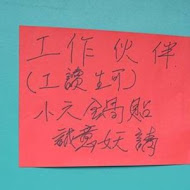 工作伙伴
(工讀生可)
小元鍋貼
誠意妖請